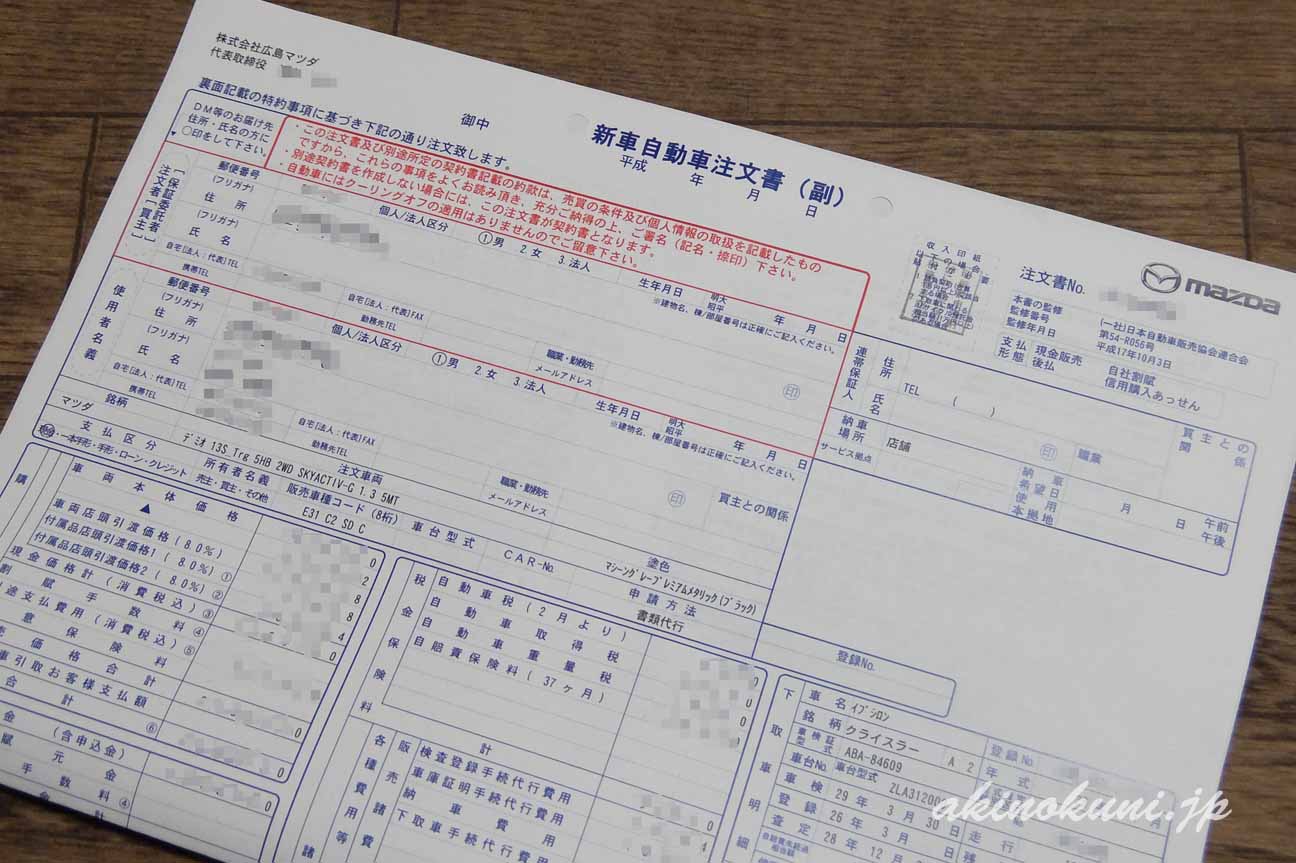 株式会社広島マツダ
代表取締役
御中
新車自動車注文書(副)
平成 年 月 日
裏面記載の特約事項に基づき下記の通り注文致します。
DM等のお届け先
住所・氏名の方に
○印をして下さい。
・この注文書及び別途所定の契約書記載の約款は、売買の条件及び個人情報の取扱を記載したもの
ですから、これらの事項をよくお読み頂き、充分ご納得の上、ご署名(記名・捺印)下さい。
・別途契約書を作成しない場合には、この注文書が契約書となります。
・自動車にはクーリングオフの適用はありませんのでご留意下さい。
注文者[買主]
[保証委託者]
郵便番号
(フリガナ)
住所
(フリガナ)
氏名
個人/法人区分
①男 2.女 3.法人
生年月日
明大
昭平
年 月 日
※建物名、棟/部屋番号は正確にご記入ください。
自宅[法人:代表]TEL
携帯TEL
自宅[法人:代表]FAX
勤務先TEL
職業・勤務先
メールアドレス
印
使用者名義
郵便番号
(フリガナ)
住所
(フリガナ)
氏名
個人/法人区分
①男 2.女 3.法人
生年月日
明大
昭平
年 月 日
※建物名、棟/部屋番号は正確にご記入ください。
自宅[法人:代表]TEL
携帯TEL
自宅[法人:代表]FAX
勤務先TEL
職業・勤務先
メールアドレス
印
買主との関係
収入印紙
注文書No.
mazda
本書の監修
監修番号
監修年月日
(一社)日本自動車販売協会連合会
第54-R056号
平成17年10月3日
支払形態
現金販売
後払
自社割賦
信用購入あっせん
連帯保証人
住所
TEL ( )
氏名
印
職業
買主との関係
納車場所
店舗
サービス拠点
納車希望日
月 日 午前
午後
使用本拠地
銘柄
マツダ
注文車両
デミオ 13S Trg 5HB 2WD SKYACTIV-G 1.3 5MT
塗色
マシーングレープレミアムメタリック(ブラック)
支払区分
現金・一本手形・手形・ローン・クレジット
所有者名義
売主・買主・その他
販売車種コード(8桁)
E31 C2 SD C
車台型式
CAR-No.
申請方法
書類代行
登録No.
車両本体価格
▲
車両店頭引渡価格(8.0%)
付属品店頭引渡価格1(8.0%)①
付属品店頭引渡価格2(8.0%)②
現金価格計(消費税込)③
割賦手数料④
途支払費用(消費税込)⑤
意保険料
売価格合計
車引取お客様支払額
合計⑥
金(含申込金)
賦元金
手数料④
合計
税金保険料
自動車税(2月より)
自動車取得税
自動車重量税
自賠責保険料(37ヶ月)
計
各種費用等
販売諸費
検査登録手続代行費用
車庫証明手続代行費用
納車費用
下取車手続代行費用
下取車明細
車名
イプシロン
銘柄
クライスラー
A 2
登録No.
車検証型式
ABA-84609
年式
車台No.
車台型式
ZLA31200
車検
29年 3月 30日
走行
登録
26年 3月
査定
28年 12月
akinokuni.jp